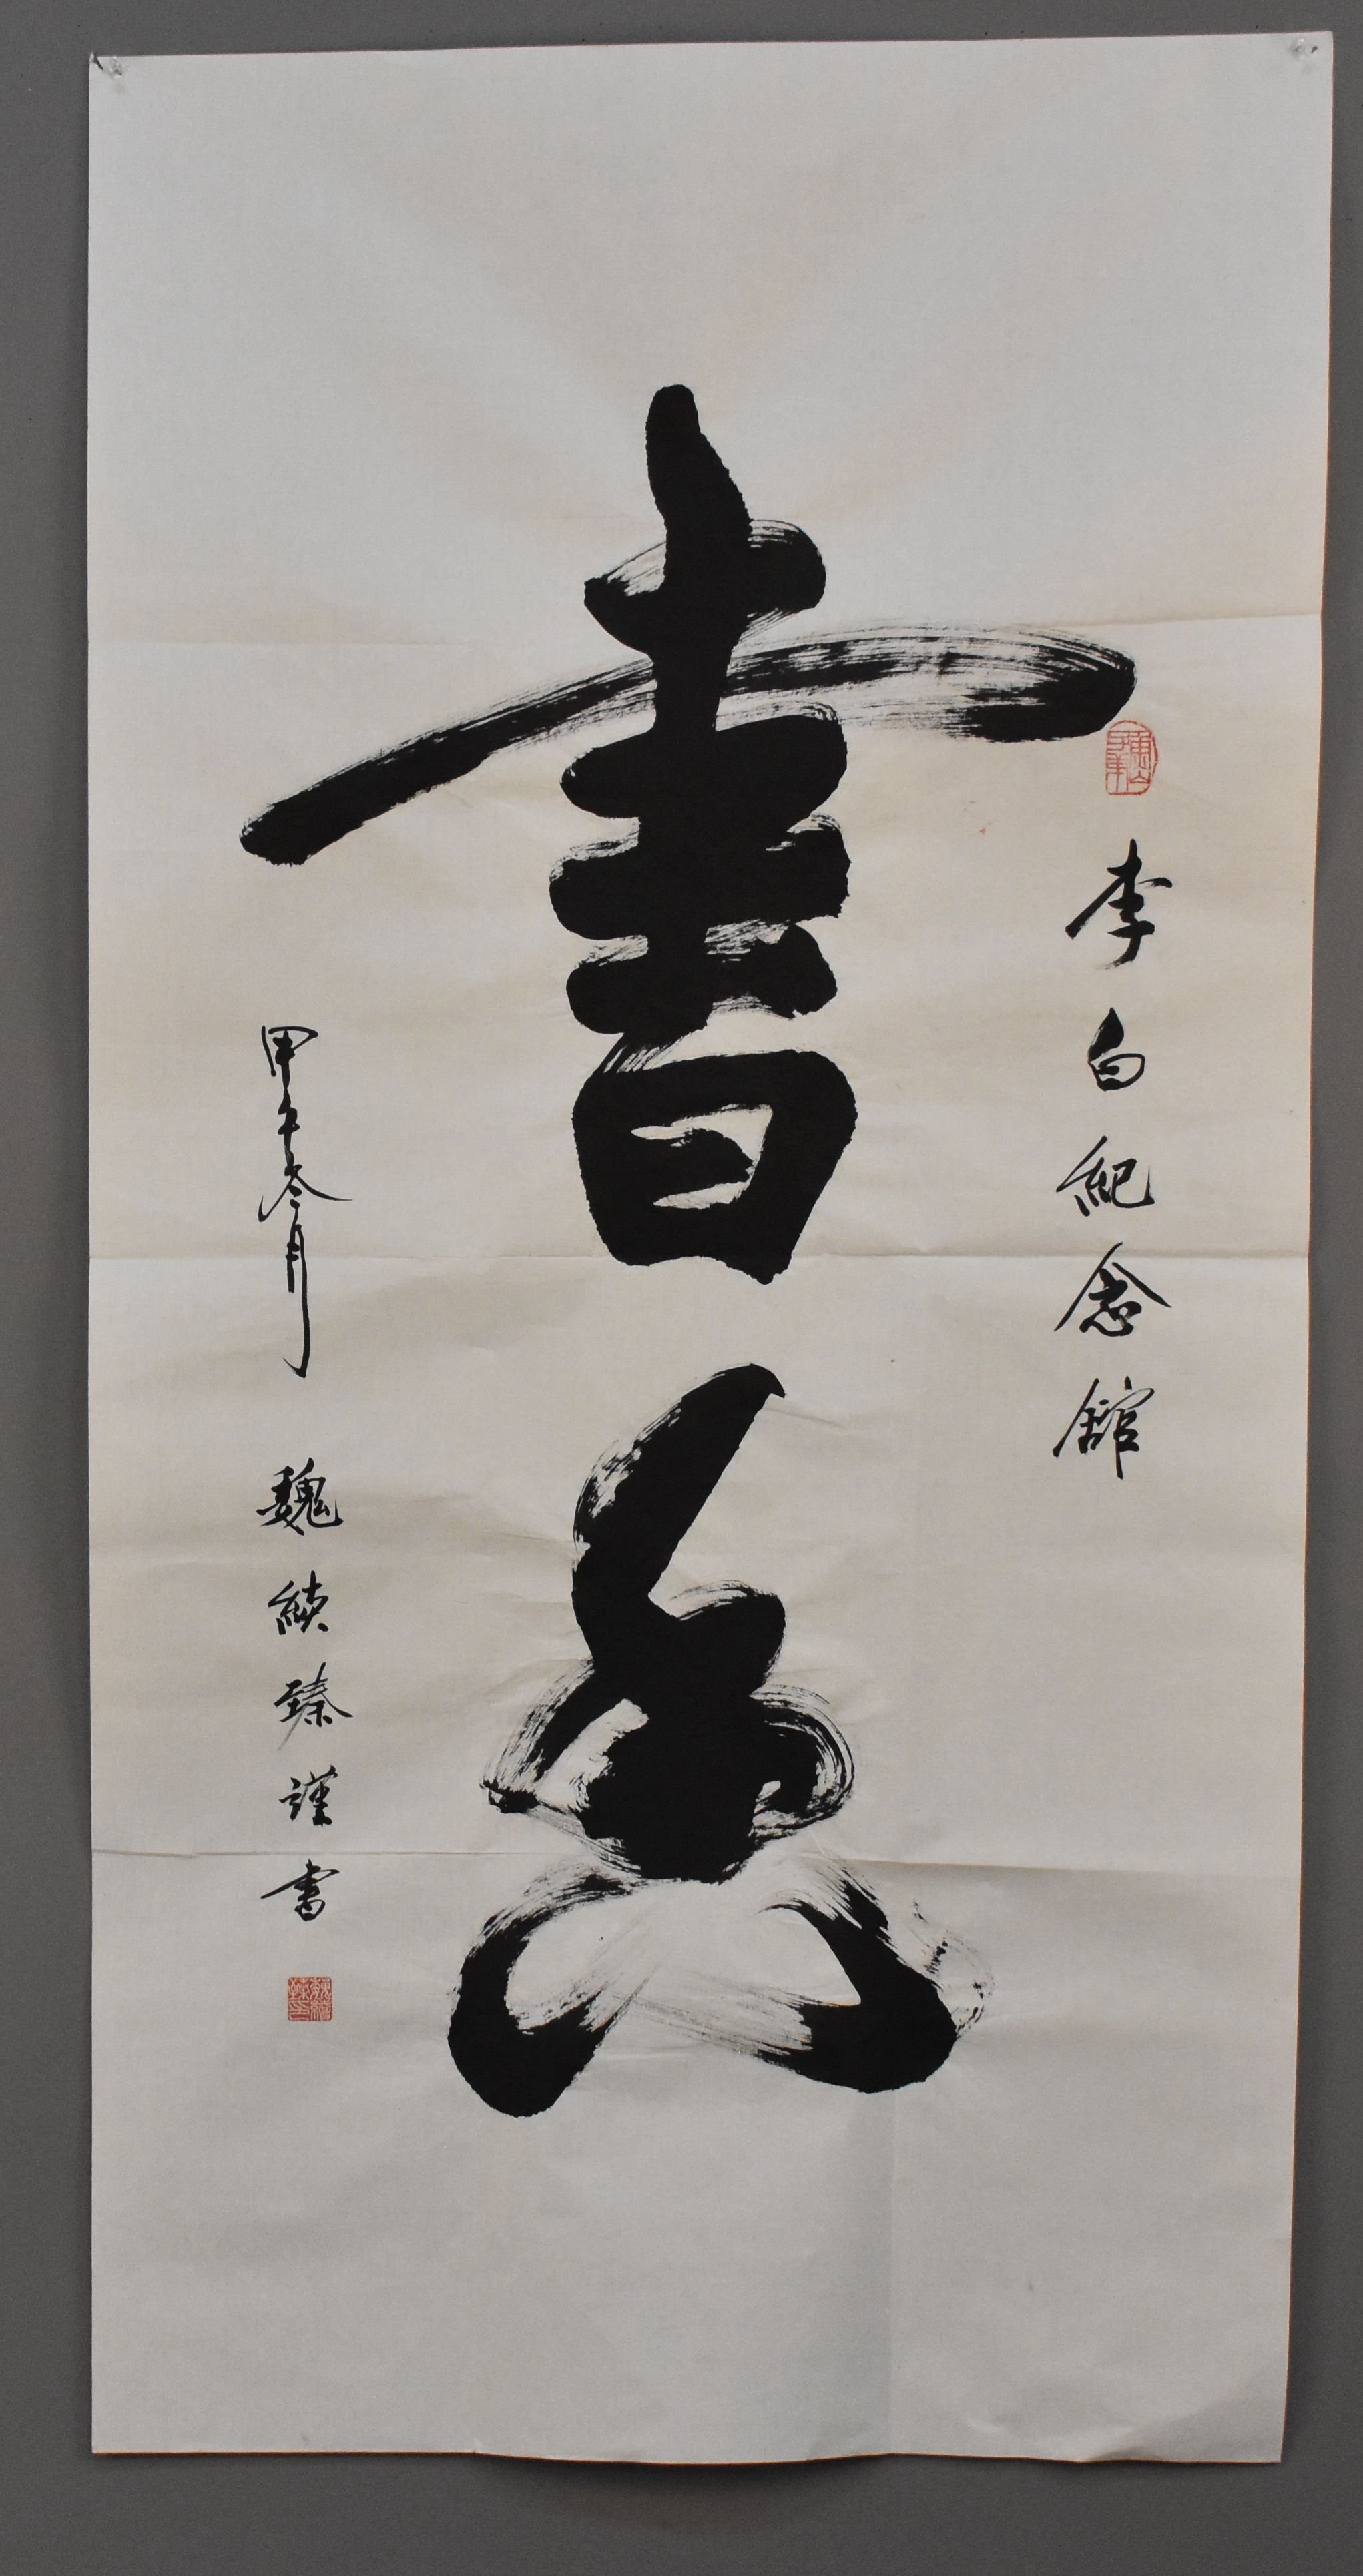 李白紀念舘
書
甲午冬月 魏續臻謹書